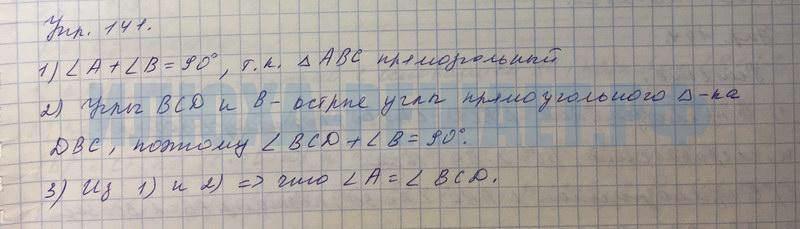 Упр. 141.
1) ∠A+∠B=90°, т.к. △ABC прямоугольный
2) Углы BCD и B - острые углы прямоугольного △-ка
DBC, поэтому ∠BCD+∠B=90°.
3) Из 1) и 2) => что ∠A=∠BCD.